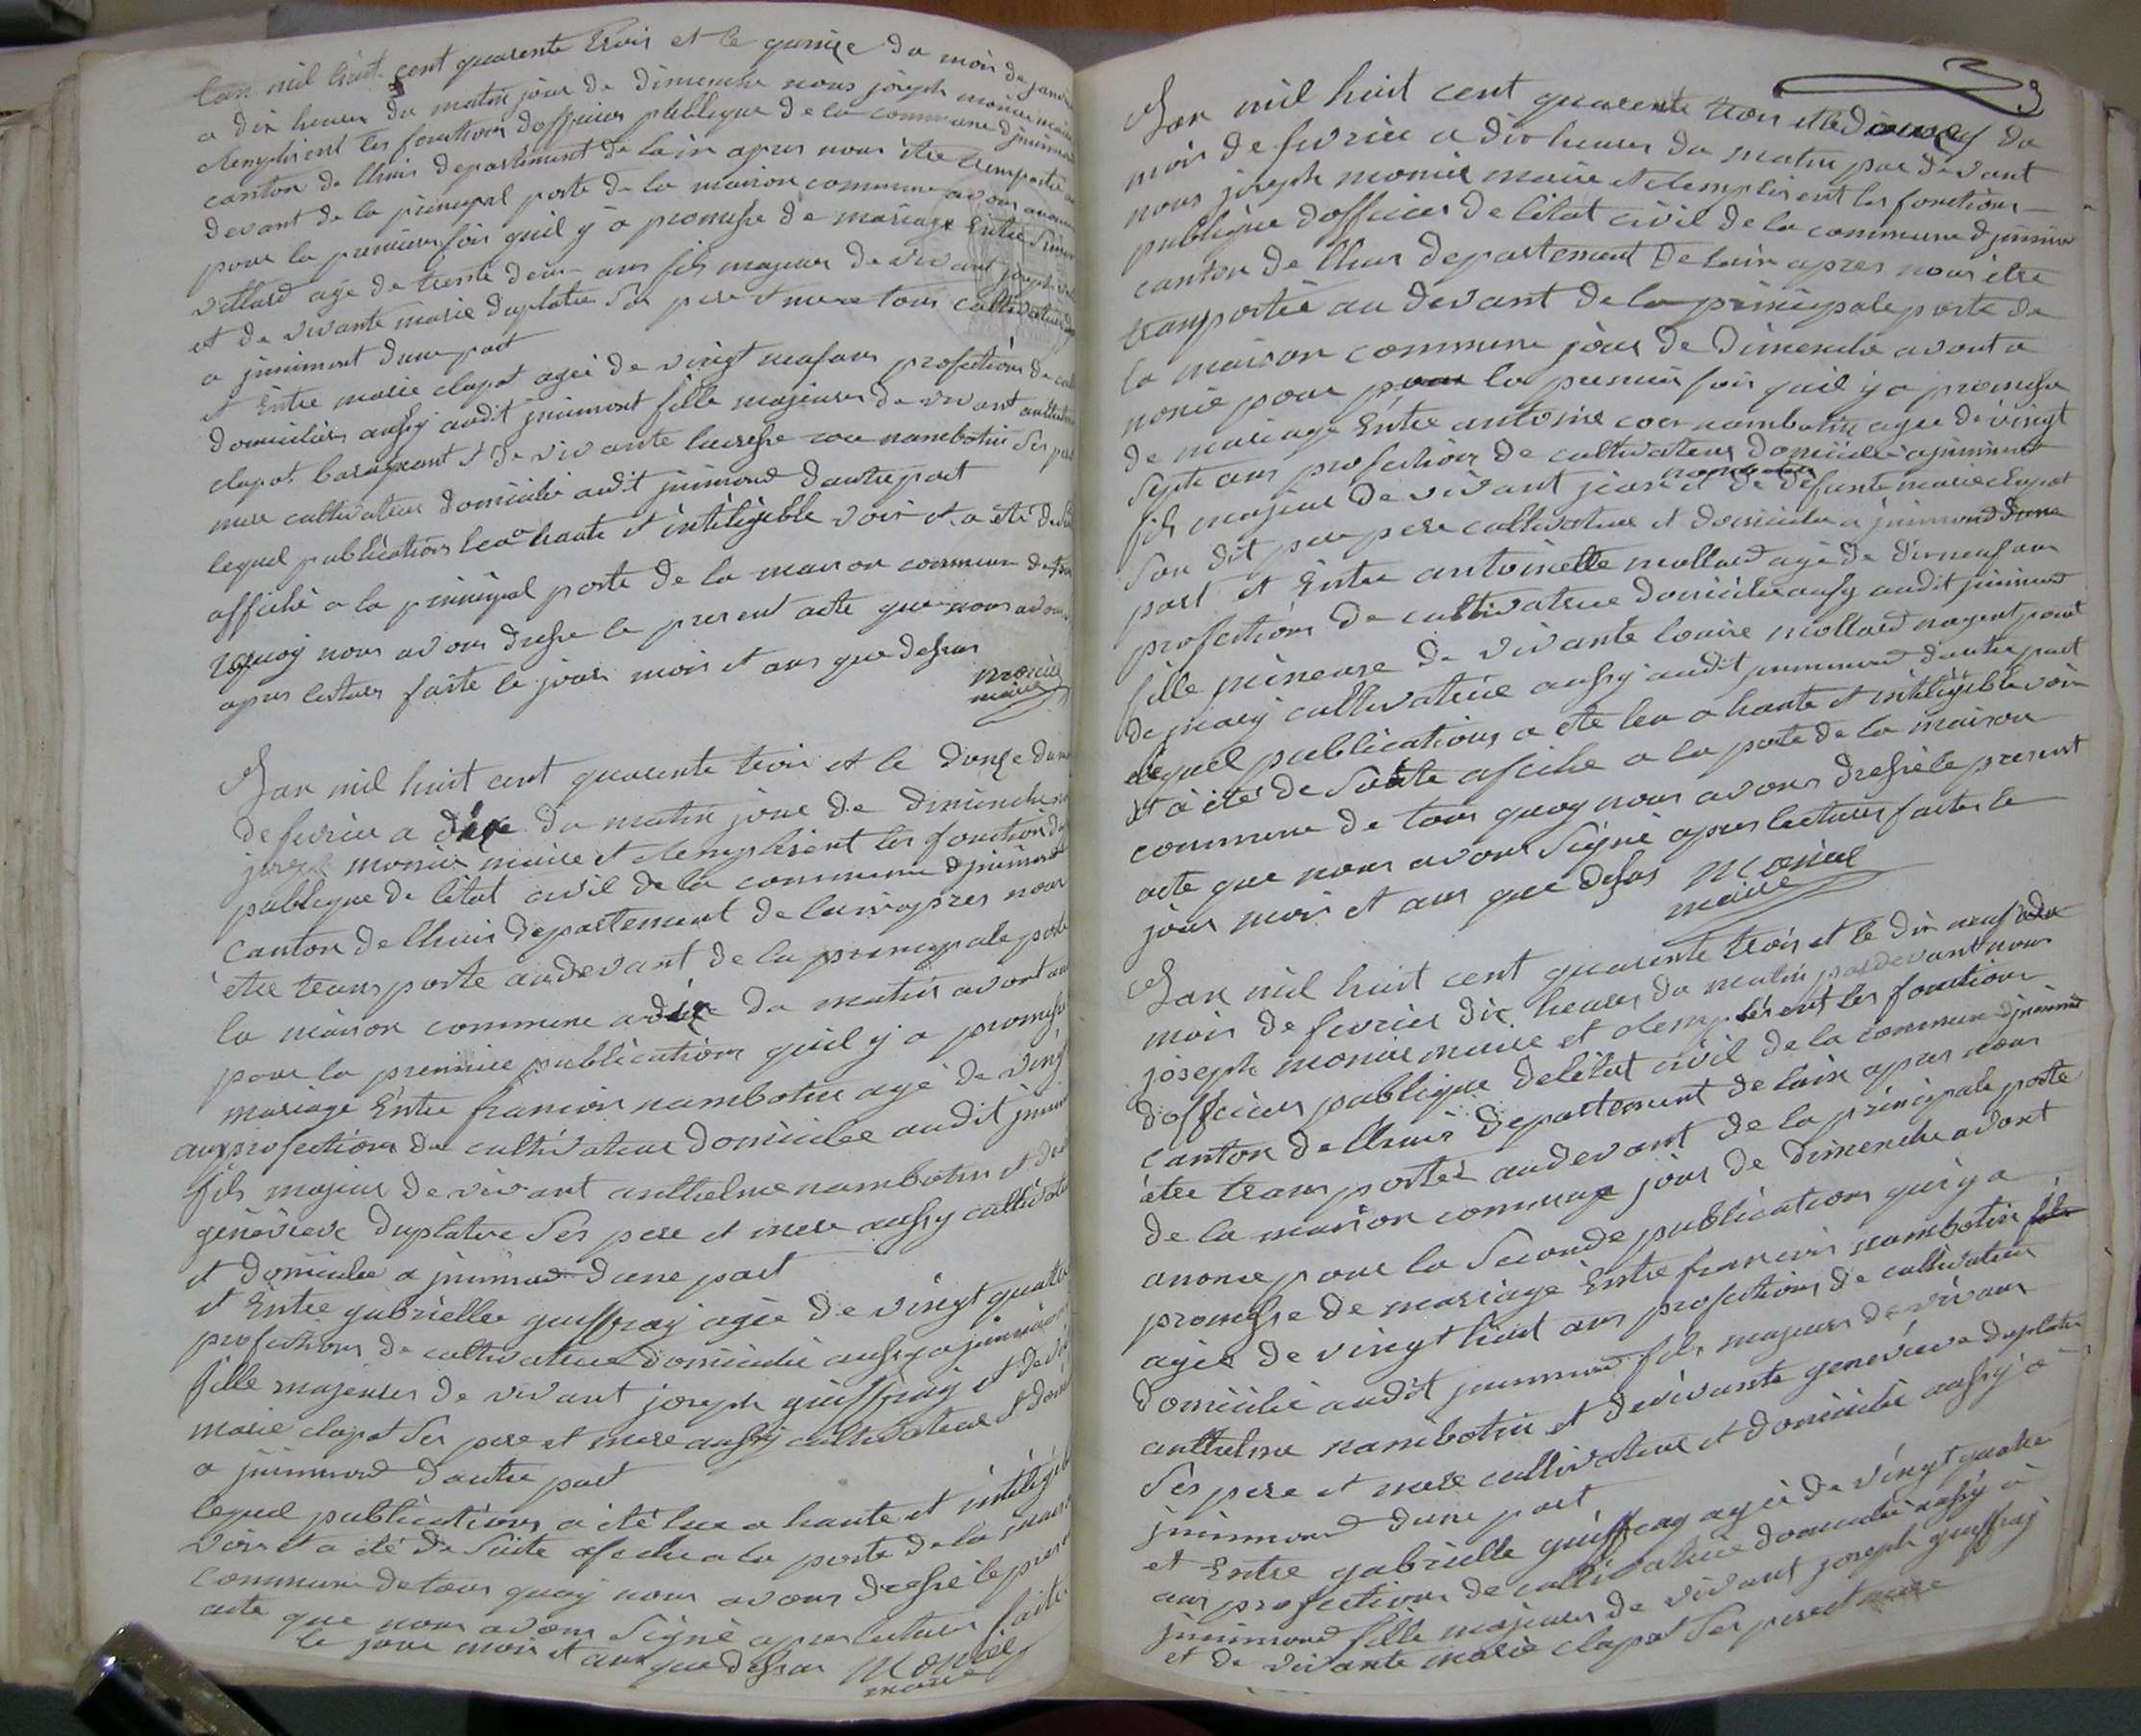 Lan mil huit cent quarente trois et le quinze du mois de janv
a dix heures du matin jour de dimenche nous joseph monier maire
Remplisent les fonctions dofficier publique de la commune djnnimont
canton de lhuis departement de lain apres nous être transportée au
devant de la principal porte de la maison commune avons anonce
pour la premiere fois quil y a promesse de mariage Entre
vettard age de trente deux ans fils majeur de vivant joseph
et de vivante marie duplatre Ses pere et mere tous cultivateur
a jnnimont dune part
et Entre marie clapot agée de vingt neuf ans profections de
domiciliée aussy audit jnnimont fille majeures de vivant anthelme
clapot et de vivante lucresse coer nambotin Ses pere
mere cultivateur domicilié audit jnnimond dautre part
lequel publications lea a haute et inteligible voix et a été de
affiché a la principal porte de la maison commune de tous
quoy nous avons dresse le present acte que nous avons
apres lectures faite le jour mois et ans que dessus
monier
maire
Lan mil huit cent quarente trois et le douze du
de fevrier a dixe du matin jour de dimenche
joseph monier maire et Remplisent les fonction
publique de létat civil de la commune djnnimont
canton de lhuis departement de lain apres nous
être transporte audevant de la principale porte
la maison commune a dix du matin avont
pour la premiere publications quil y a promesse
mariage Entre francois nambotin agé de vingt
ans profections de cultivateur domicilee audit jnnim
fils majeur de vivant anthelme nambotin et de
genevieve duplatre Ses pere et mere aussy cultivate
et domicilie a jnnimond dune part
et Entre gabrielle guiffray agée de vingt quatre
profections de cultivatrice domiciliée aussy a jnnimon
fille majeures de vivant joseph guiffray et de vi
marie clapot Ses pere et mere aussy cultivateur et domi
a jnnimond dautre part
lequel publications a été lue a haute et inteligib
voix et a été de Suite afiche a la porte de la maison
commune de tous quoy nous avons dressé le presen
acte que nous avons Signé apres lectures faites
le jour mois et ans que dessus Monier
maire
3
Lan mil huit cent quarente trois et le douzes du
mois de fevrier a dix heures du matin par devant
nous joseph monier maire et Remplisent les fonctions
publique dofficier de létat civil de la commune djnnimon
canton de lhuis departement de lain apres nous être
transportée au devant de la principale porte de
la maison commune jour de dimenche avont a
noncé pour pour la premier fois quil y a promesse
de mariage Entre antoine coer nambotin agée de vingt
septe ans profection de cultivateur domicilié a jnnimond
nambotin
fils majeur de vivant jean et de défunte marie clapot
Son dit pere cultivateur et domicilie a jnnimond dune
part et Entre antoinette mollard agé de dix neuf ans
profections de cultivatrice domicilie aussy audit jnnimond
fille mineure de vivante louise mollard nayent point
de mary cultivatrice aussy audit jnnimond dautre part
lequel publications a été leu a haute et intéligible voix
et a été de Suite afiche a la porte de la maison
commune de tous quoy nous avons dressé le present
acte que nous avons Signé apres lectures faites le
jour mois et ans que desus Monier
maire
Lan mil huit cent quarente trois et le dix neuf du
mois de fevrier dix heures du matin par devant nous
joseph monier maire et Remplisent les fonctions
dofficier publique de létat civil de la commune djnnimond
canton de lhuis departement de lain apres nous
être transportée audevant de la principale porte
de la maison commune jour de dimenche avont
anonce pour la Seconde publications qui y a
promesse de mariage Entre francois nambotin fils
agée de vingt huit ans profections de cultivateur
domicilié audit jnnimond fils majeur de vivant
anthelme nambotin et devivante genevieve duplatre
Ses pere et mere cultivateur et domicilié aussy a
jnnimond dune part
et Entre gabrielle guiffray agée de vingt quatre
ans profections de cultivatrice domicilié aussy a
jnnimond fille majeures de vivant joseph guiffray
et de vivante marie clapot Ses pere et mere